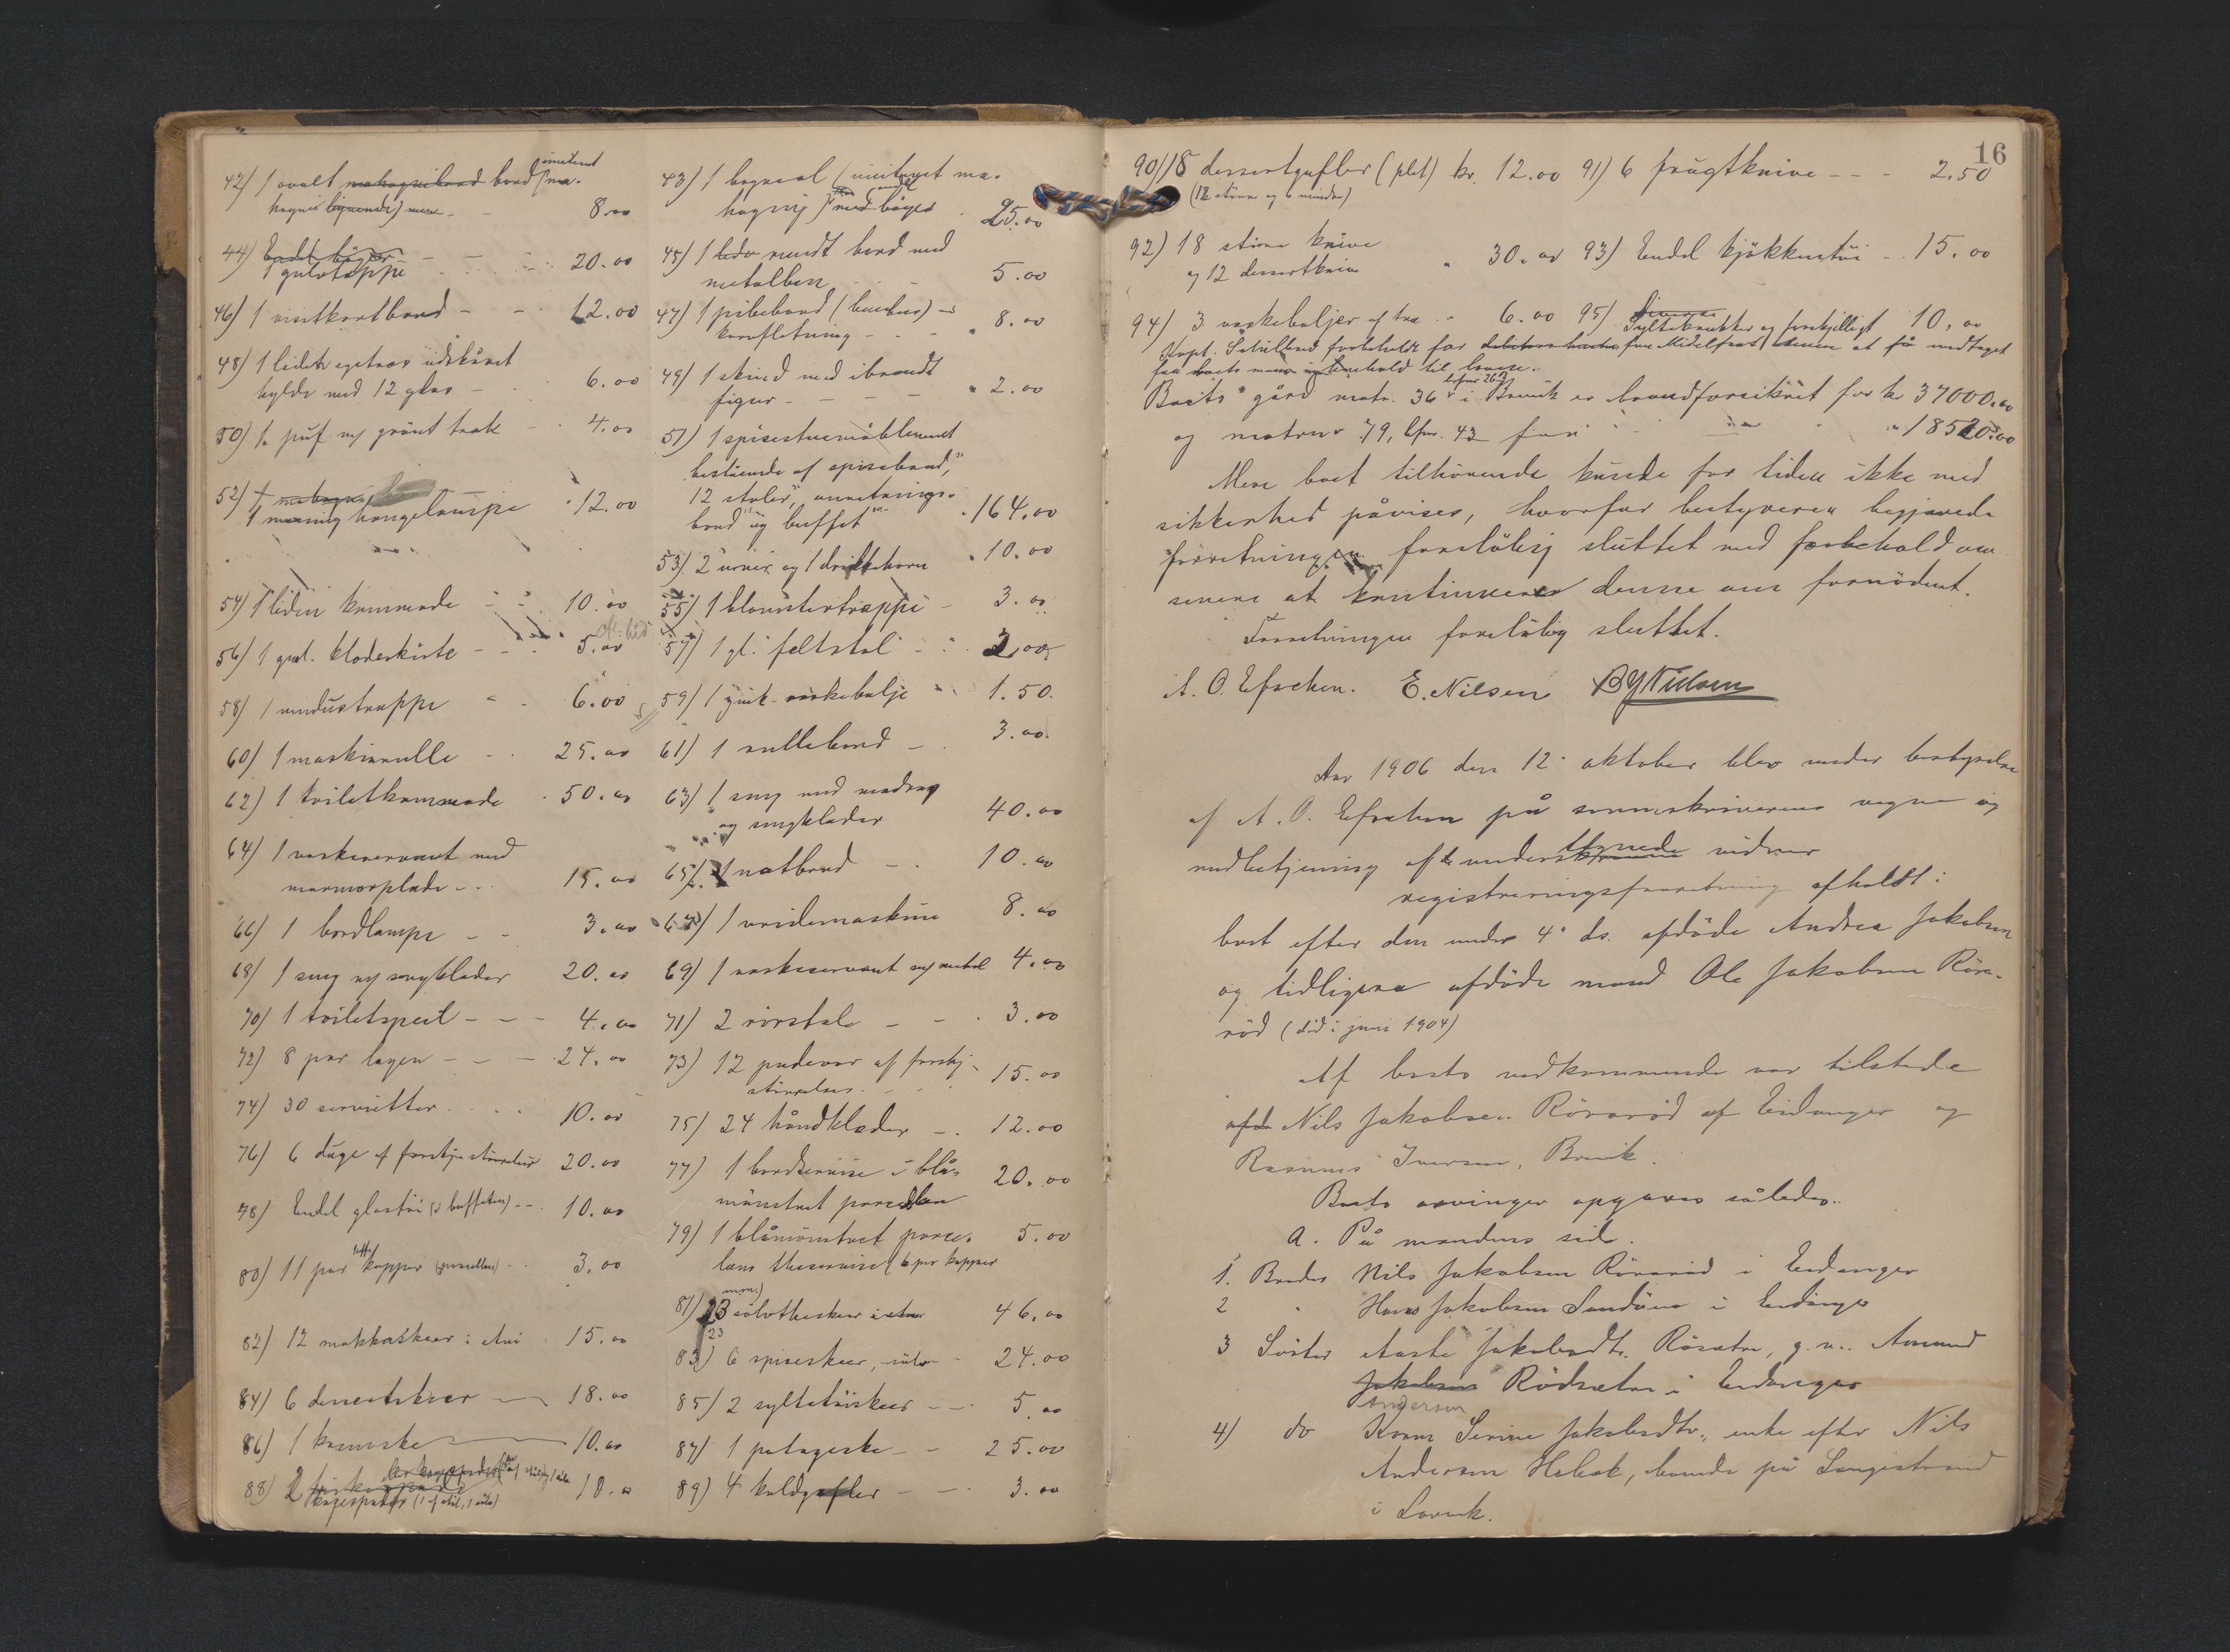 42) 1 ovalt mahognibord bord (imiteret ma-
hogni lignende) - 8.00
44) Endel bøger
1 gulvteppe - - 20.00
46) 1 visitkortbord - - 12.00
48) 1 liden egetræs udskåret
hylde med 12 glas - 6.00
50) 1 puf m/ grönt træk - 4.00
52) 1
1 messing hængelampe " 12.00
54) 1 liden kommode - 10.00
56) 1 gml. klædeskiste - - 5.00
58) 1 vindustrappe - 6.00
60) 1 maskinrulle - - 25.00
62) 1 toiletkommode - 50.00
64) 1 vaskeservant med
marmorplade - - 15.00
66) 1 bordlampe - - 3.00
68) 1 seng m/ sengklæder 20.00
70) 1 toiletspeil - - - 4.00
72) 8 par lagen - - - 24.00
74) 30 servietter - - - 10.00
76) 6 duge af forskj. størrelser 20.00
78) Endel glastöi (i buffeten) - - 10.00
80) 11 par kopper (porcellæn) - - 3.00
82) 12 mokkaskeer i etui 15.00
84) 6 dessertskeer - 18.00
86) 1 kremske - 10.00
88) 2
kagespader (1 af stål, 1 sølv) 10.00
43) 1 bogreol (imiteret ma-
hogny) med bøger 25.00
45) 1 rundt bord med
metalben 5.00
47) 1 pibebord (bambus) -
kurvfletning - - " 8.00
49) 1 skind med ibrændt
figur - - - - " 2.00
51) 1 spisestuemöblement
bestående af spisebord,
12 stoler, anretnings-
bord og buffet " 164.00
53) 2 urner og 1 drikkehorn " 10.00
55) 1 blomstertrappe - 3.00
57) 1 gl. feltstol - - 2.00
59) 1 zink-vaskebalje " 1.50
61) 1 rullebord - 3.00
63) 1 seng med madras
og sengklæder 40.00
65) 1 natbord - - 10.00
67) 1 vridemaskine 8.00
69) 1 vaskeservant af metal 4.00
71) 2 rörstole - - - 3.00
73) 12 pudevar af forskj.
størrelser - - 15.00
75) 24 håndklæder - - 12.00
77) 1 bordservise i blå-
mönstret porcellæn 20.00
79) 1 blåmönstret porce- 5.00
læns theservise (6 par kopper
81) 23 sölvtheskeer 46.00
23
83) 6 spiseskeer, sölv - 24.00
85) 2 syltetöiskeer - - 5.00
87) 1 potageske - - 25.00
89) 4 koldgafler - - 3.00
16
90) 18 dessertgafler (plet) kr. 12.00 91) 6 frugtknive - - - 2.50
(12 större og 6 mindre)
92) 18 större knive
og 12 dessertknive " 30.00 93) Endel kjökkentöi - 15.00
94) 3 vaskebaljer af træ - " 6.00 95) Diverse
Syltekrukker og forskjelligt 10.00
Boets gård matr. 36 brsnr 263 i Brevik er brandforsikret for kr 37000.00
og matrnr 79, lbnr. 43 for - - - " 18520.00
Mere boet tilhörende kunde for tiden ikke med
sikkerhed påvises, hvorfor bestyreren begjærede
forretningen foreløbig sluttet med forbehold om
senere at kontinuere denne om fornödent.
Forretningen foreløbig sluttet.
A. O. Efschen. E. Nilsen B Y Nielsen
Aar 1906 den 12' oktober blev under bestyrelse
af A. O. Efschen på sorenskriverens vegne og
medbetjening af de undertegnede vidner
registreringsforretning afholdt i
boet efter den under 4' ds. afdöde Andrea Jakobsen
og tidligere afdöde mand Ole Jakobsen Röra-
röd (död i juni 1904)
Af boets vedkommende var tilstede
Nils Jakobsen Röraröd af Eidanger og
Rasmus Iversen, Brevik.
Boets arvinger opgaves således:
A. På mandens side.
1. Broder Nils Jakobsen Röraröd i Eidanger
2 " Hans Jakobsen Sandöen i Eidanger
3 Söster Aaste Jakobsdtr. Rösatre, g. m. Amund
Jakobsen Rödsæter i Eidanger
Andersen
4) do Karen Serine Jakobsdtr., enke efter Nils
Andersen Holbæk, boende på Langestrand
i Larvik.